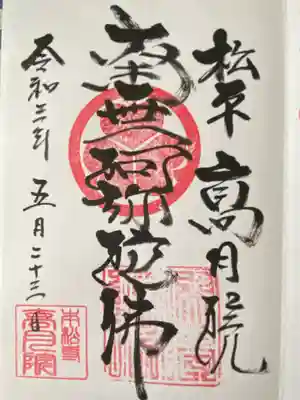 松平 高月院
南無阿弥陀佛
令和三年 五月二十三日
本松山
高月院